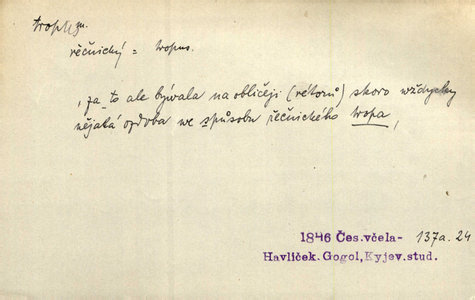 trop m.
řečnický = tropus.
„za to ale bývala na obličeji (rétorů) skoro vždycky
nějaká ozdoba we způsobu řečnického tropa,
1846 Čes.včela- 137a. 24
Havlíček. Gogol, Kyjev.stud.